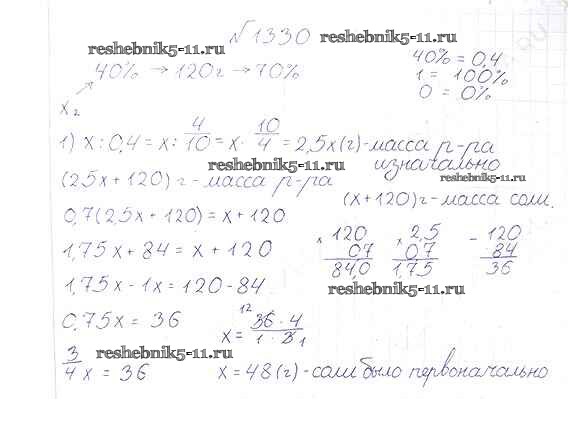 √1330
reshebnik5-11.ru
reshebnik5-11.ru
40% → 120г → 70%
40% = 0,4
1 = 100%
0 = 0%
x г
1) x : 0,4 = x : 4/10 = x · 10/4 = 2,5x (г) - масса р-ра
изначально
reshebnik5-11.ru
reshebnik5-11.ru
(2,5x + 120) г - масса р-ра
(x + 120) г - масса соли.
0,7(2,5x + 120) = x + 120
1,75x + 84 = x + 120
× 120 0,7 84,0
× 2,5 0,7 1,75
- 120 84 36
1,75x - 1x = 120 - 84
reshebnik5-11.ru
0,75x = 36
x = 36 · 4 / 1 · 3 12 1
reshebnik5-11.ru
3/4 x = 36
x = 48 (г) - соли было первоначально